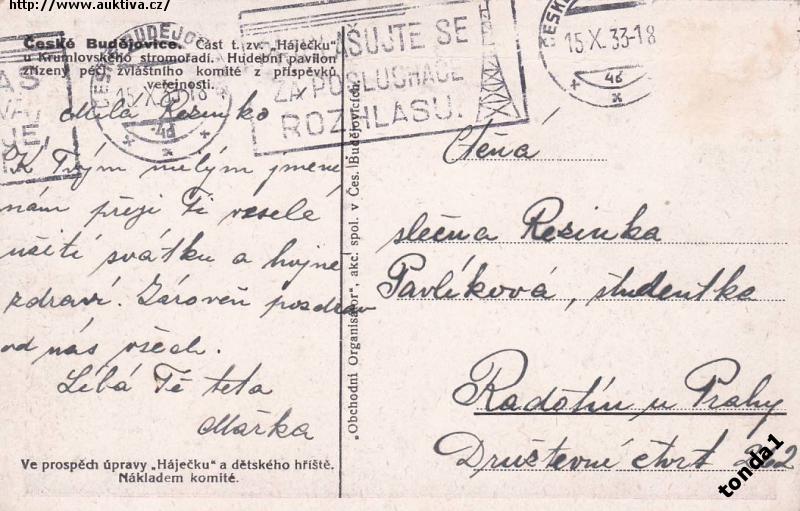 http://www.auktiva.cz/
České Budějovice. Část t. zv. „Háječku"
u Krumlovského stromořadí. Hudební pavilon
zřízený péčí zvláštního komité z příspěvků
veřejnosti.
15 X 33-18
4d
SUJTE SE
ZA POSLUCHAČE
ROZHLASU.
ČESKÉ
15 X. 33-18
4d
Milá Resinko
K Tvým milým jmeni
nám přeji Ti veselé
užití svátku a hojně
zdraví. Zároveň pozdrav
od nás všech.
Líbá Tě teta
Mařka
Ve prospěch úpravy „Háječku" a dětského hřiště.
Nákladem komité.
„Obchodní Organisátor", akc. spol. v Čes. Budějovicích.
Ctěná
slečna Resinka
Pavlíková, studentka
Radotín u Prahy
Družtevní čtvrt
tonda1